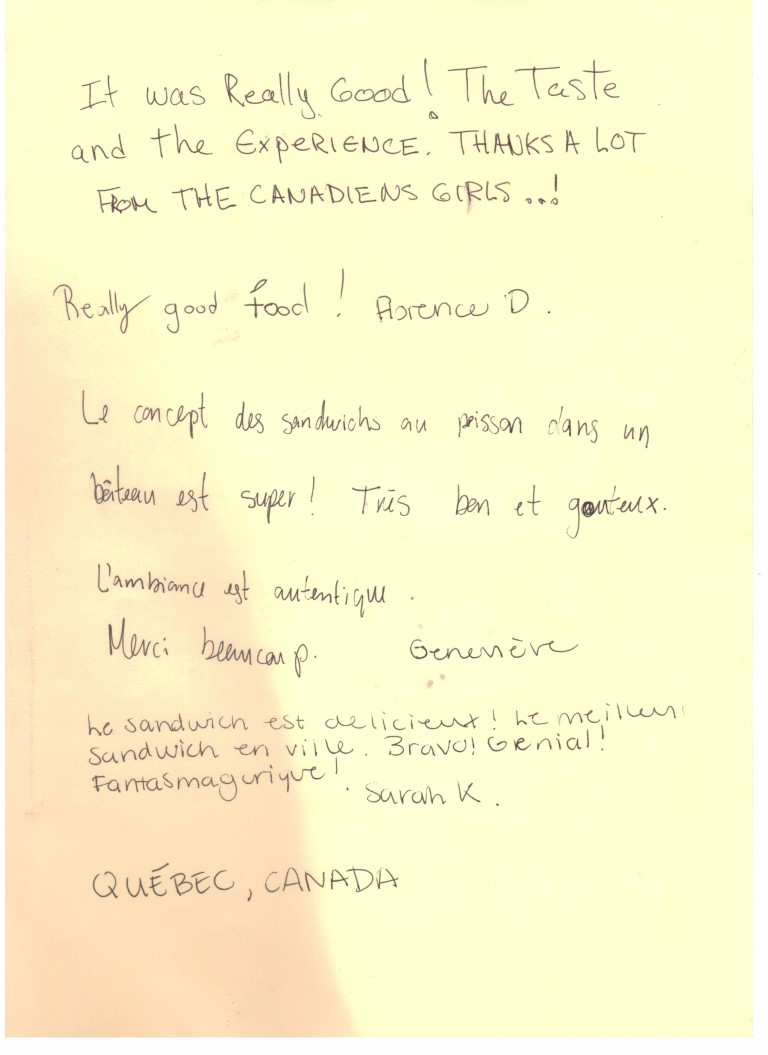 It was Really Good! The Taste
and the ExpeRIENCE. THANKS A LOT
FROM THE CANADIENS GIRLS ..!
Really good food! Florence D.
Le concept des sandwichs au poisson dans un
bâteau est super! Très bon et goûteux.
L'ambiance est autentique.
Merci beaucoup. Geneviève
Le sandwich est délicieux! Le meilleur
sandwich en ville. Bravo! Génial!
Fantasmagorique! Sarah K.
QUÉBEC, CANADA